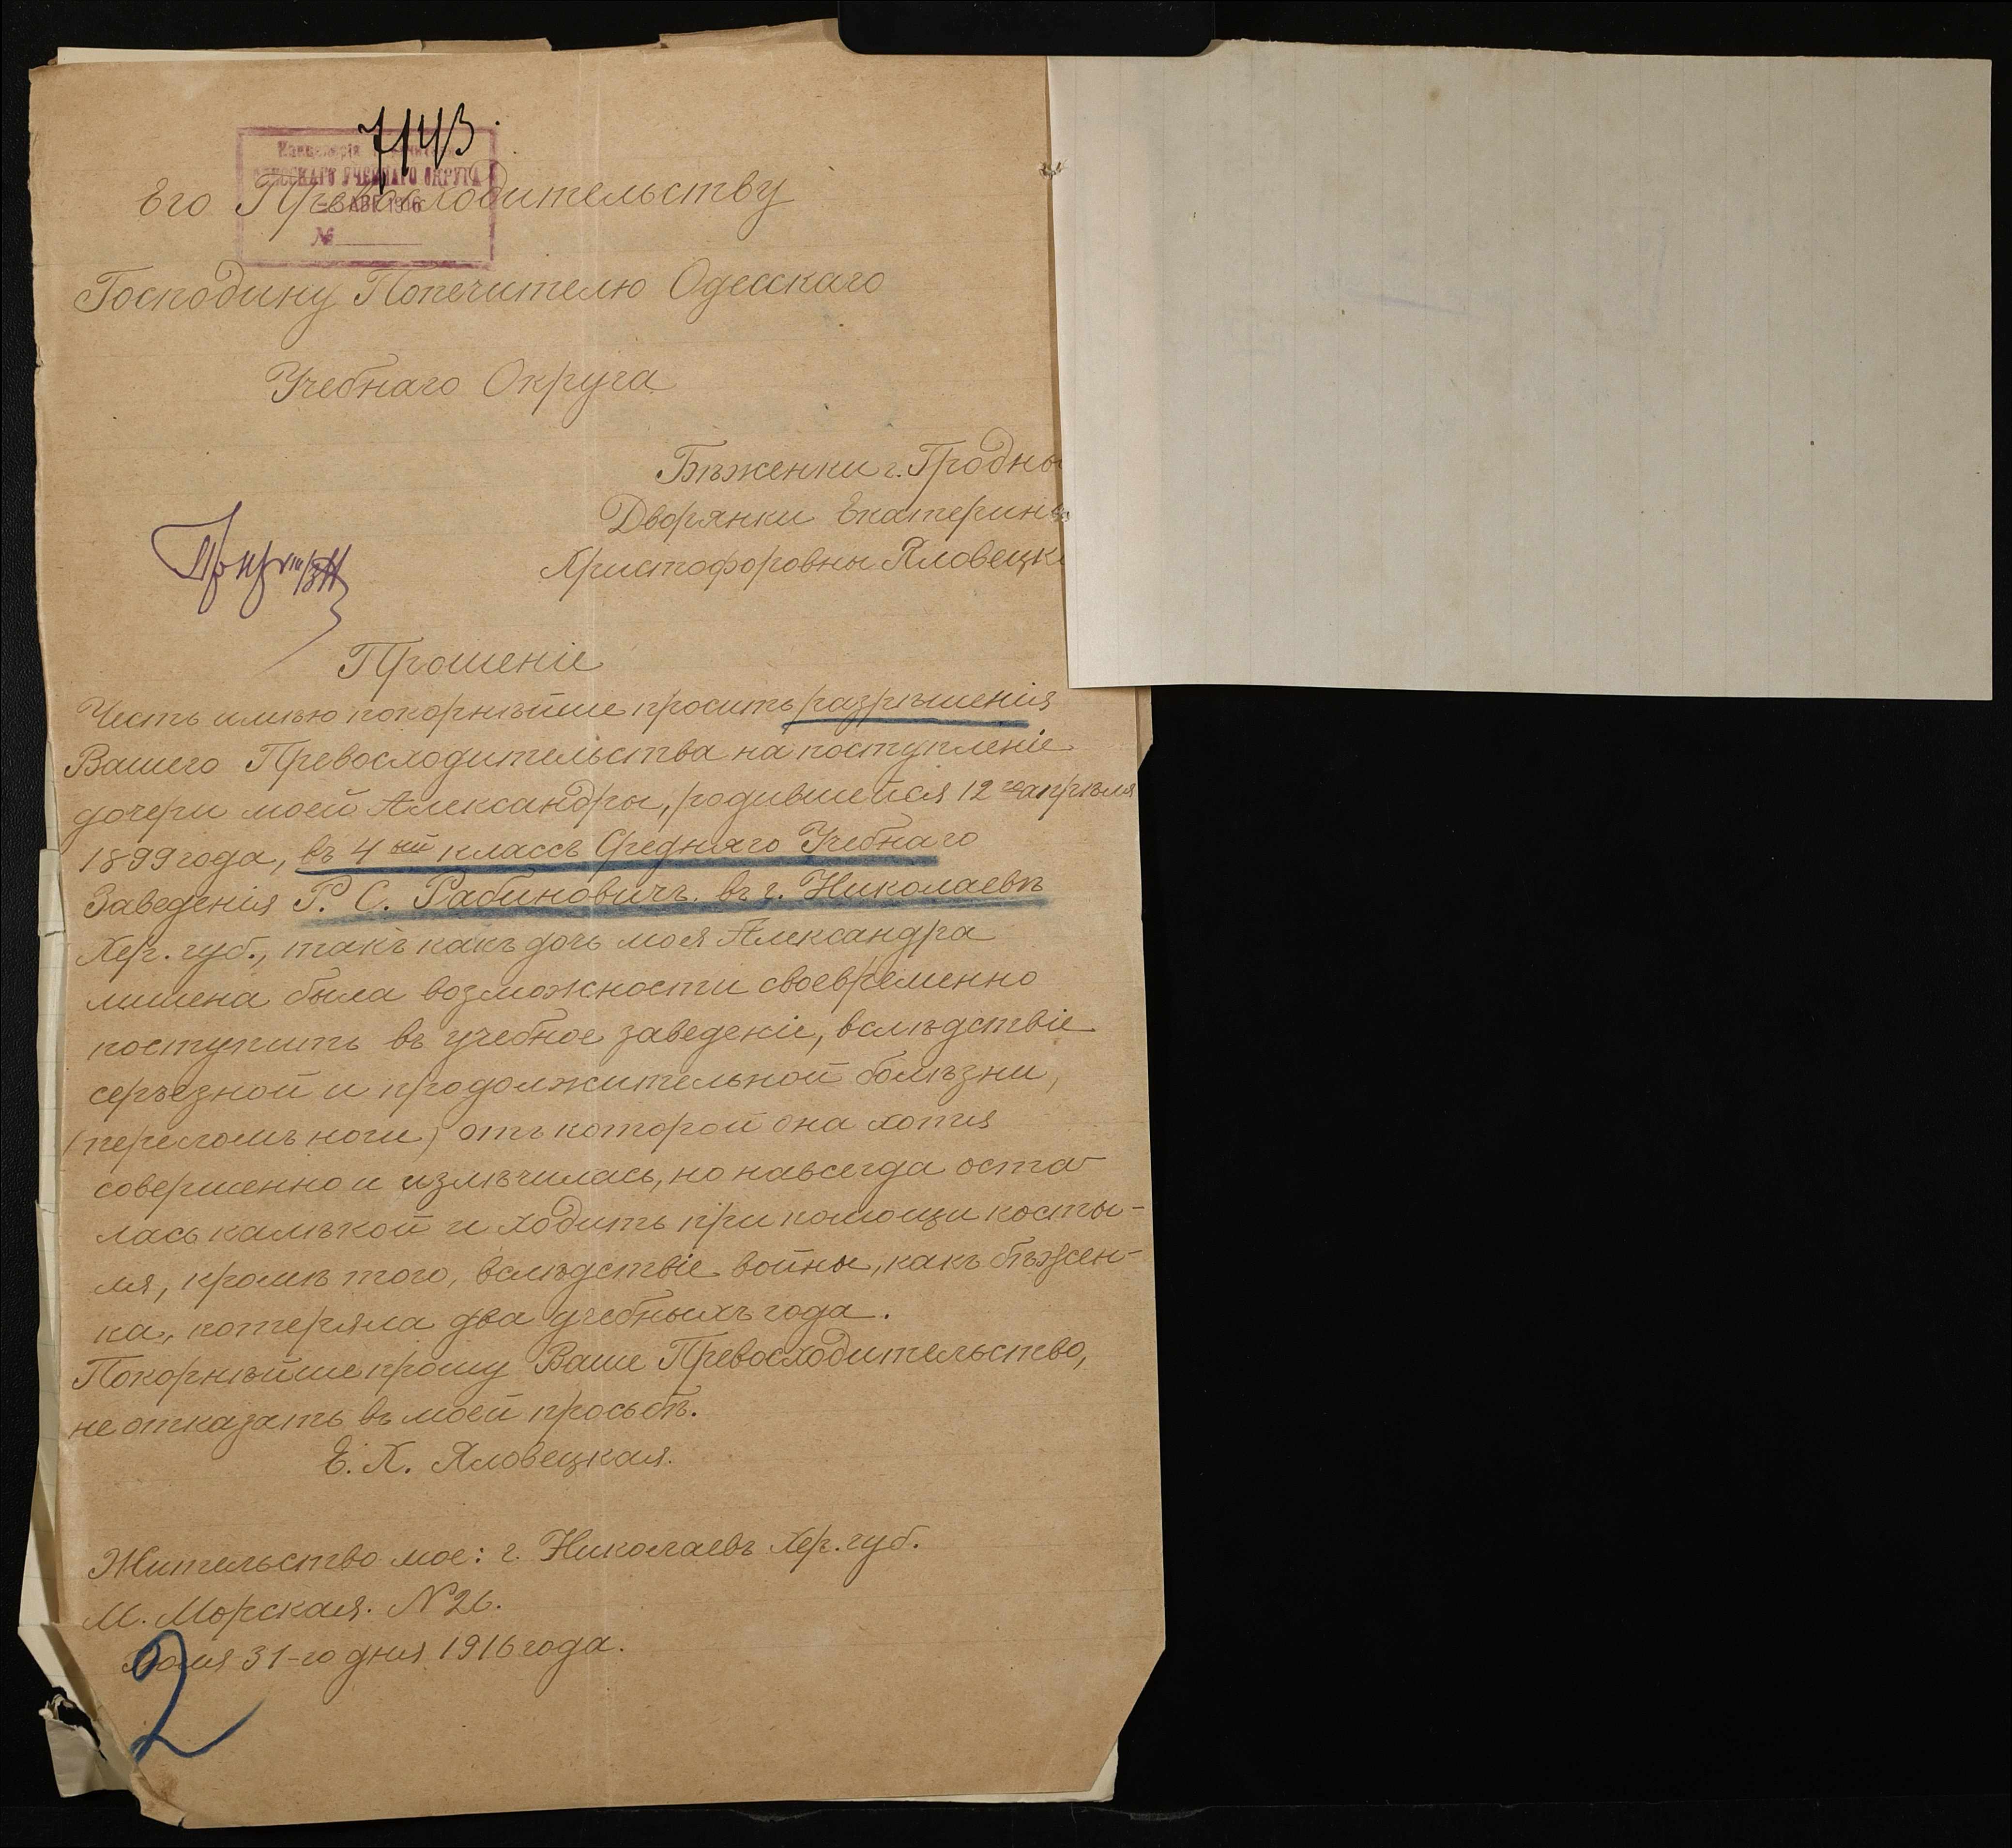 7143.
Канцелярія Попечителя
ОДЕССКАГО УЧЕБНАГО ОКРУГА
АВГ. 1916
№
Его Превосходительству
Господину Попечителю Одесскаго
Учебнаго Округа
Бѣженки г. Гродны
Дворянки Екатерины
Христофоровны Яловецк
Прошеніе
Честь имѣю покорнѣйше просить разрѣшенія
Вашего Превосходительства на поступленіе
дочери моей Александры, родившейся 12го апрѣля
1899 года, въ 4ый классъ Средняго Учебнаго
Заведенія Р. С. Рабиновичъ въ г. Николаевѣ
Хер. губ., такъ какъ дочь моя Александра
лишена была возможности своевременно
поступить въ учебное заведеніе, вслѣдствіе
серьезной и продолжительной болѣзни,
(переломъ ноги) отъ которой она хотя
совершенно и излѣчилась, но навсегда оста-
лась калѣкой и ходитъ при помощи косты-
ля, кромѣ того, вслѣдствіе войны, какъ бѣжен-
ка, потеряла два учебныхъ года.
Покорнѣйше прошу Ваше Превосходительство,
не отказать въ моей просьбѣ.
Е. Х. Яловецкая.
Жительство мое: г. Николаевъ Хер. губ.
М. Морская. N 26.
Іюля 31-го дня 1916 года.
2